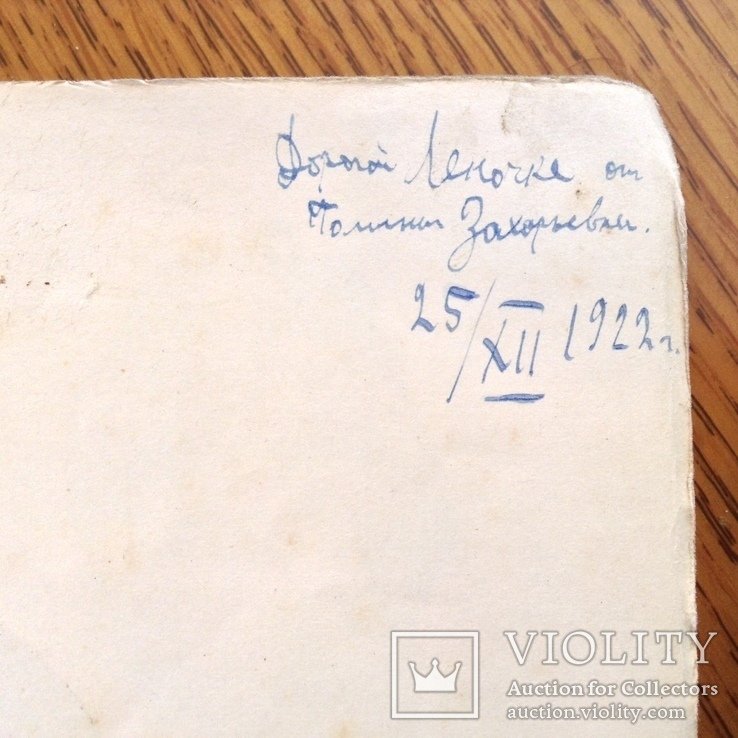 Дорогой Леночке от
Полины Захарьевны.
25/XII 1922 г.
VIOLITY
Auction for Collectors
auction.violity.com